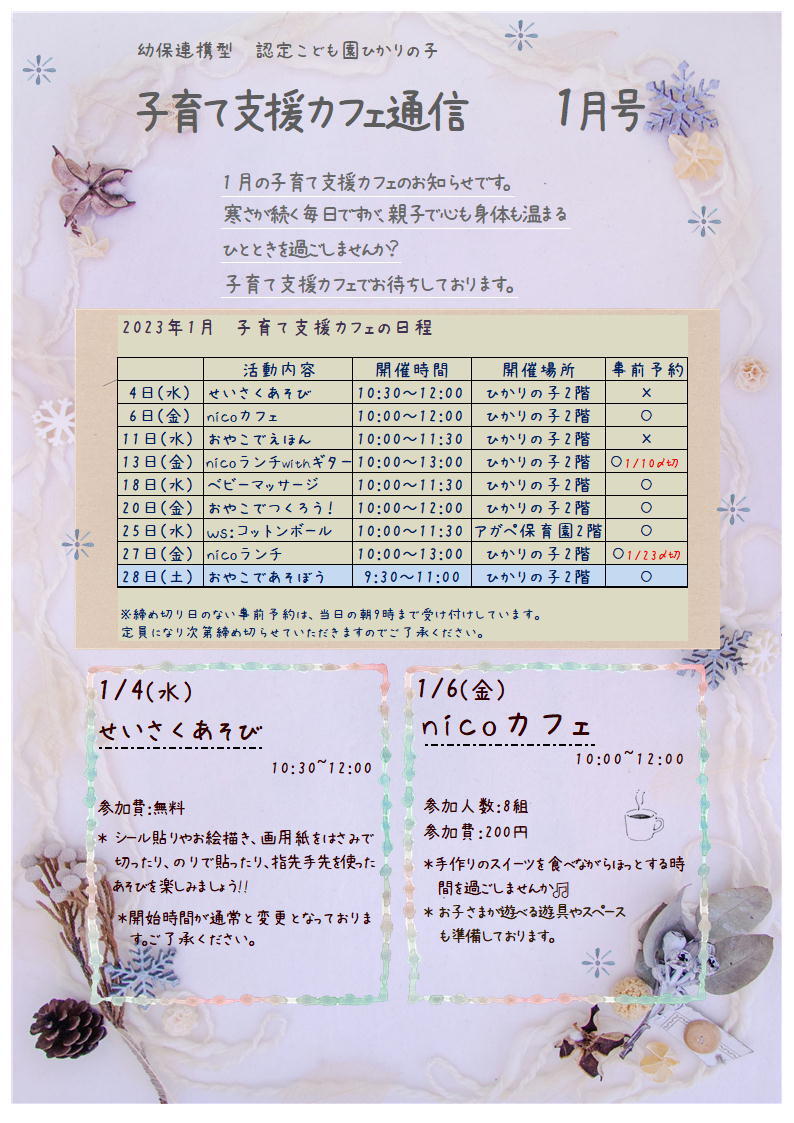 幼保連携型　認定こども園ひかりの子
子育て支援カフェ通信　1月号
1月の子育て支援カフェのお知らせです。
寒さが続く毎日ですが、親子で心も身体も温まる
ひとときを過ごしませんか？
子育て支援カフェでお待ちしております。
2023年1月　子育て支援カフェの日程
活動内容　開催時間　開催場所　事前予約
4日(水)　せいさくあそび　10:30～12:00　ひかりの子2階　×
6日(金)　nicoカフェ　10:00～12:00　ひかりの子2階　○
11日(水)　おやこでえほん　10:00～11:30　ひかりの子2階　×
13日(金)　nicoランチwithギター　10:00～13:00　ひかりの子2階　○1/10〆切
18日(水)　ベビーマッサージ　10:00～11:30　ひかりの子2階　○
20日(金)　おやこでつくろう！　10:00～12:00　ひかりの子2階　○
25日(水)　ws:コットンボール　10:00～11:30　アガペ保育園2階　○
27日(金)　nicoランチ　10:00～13:00　ひかりの子2階　○1/23〆切
28日(土)　おやこであそぼう　9:30～11:00　ひかりの子2階　○
※締め切り日のない事前予約は、当日の朝9時まで受け付けしています。
定員になり次第締め切らせていただきますのでご了承ください。
1/4(水)
せいさくあそび
10:30~12:00
参加費:無料
* シール貼りやお絵描き、画用紙をはさみで
切ったり、のりで貼ったり、指先手先を使った
あそびを楽しみましょう!!
*開始時間が通常と変更となっておりま
す。ご了承ください。
1/6(金)
nicoカフェ
10:00~12:00
参加人数:8組
参加費:200円
*手作りのスイーツを食べながらほっとする時
間を過ごしませんか♫
* お子さまが遊べる遊具やスペース
も準備しております。